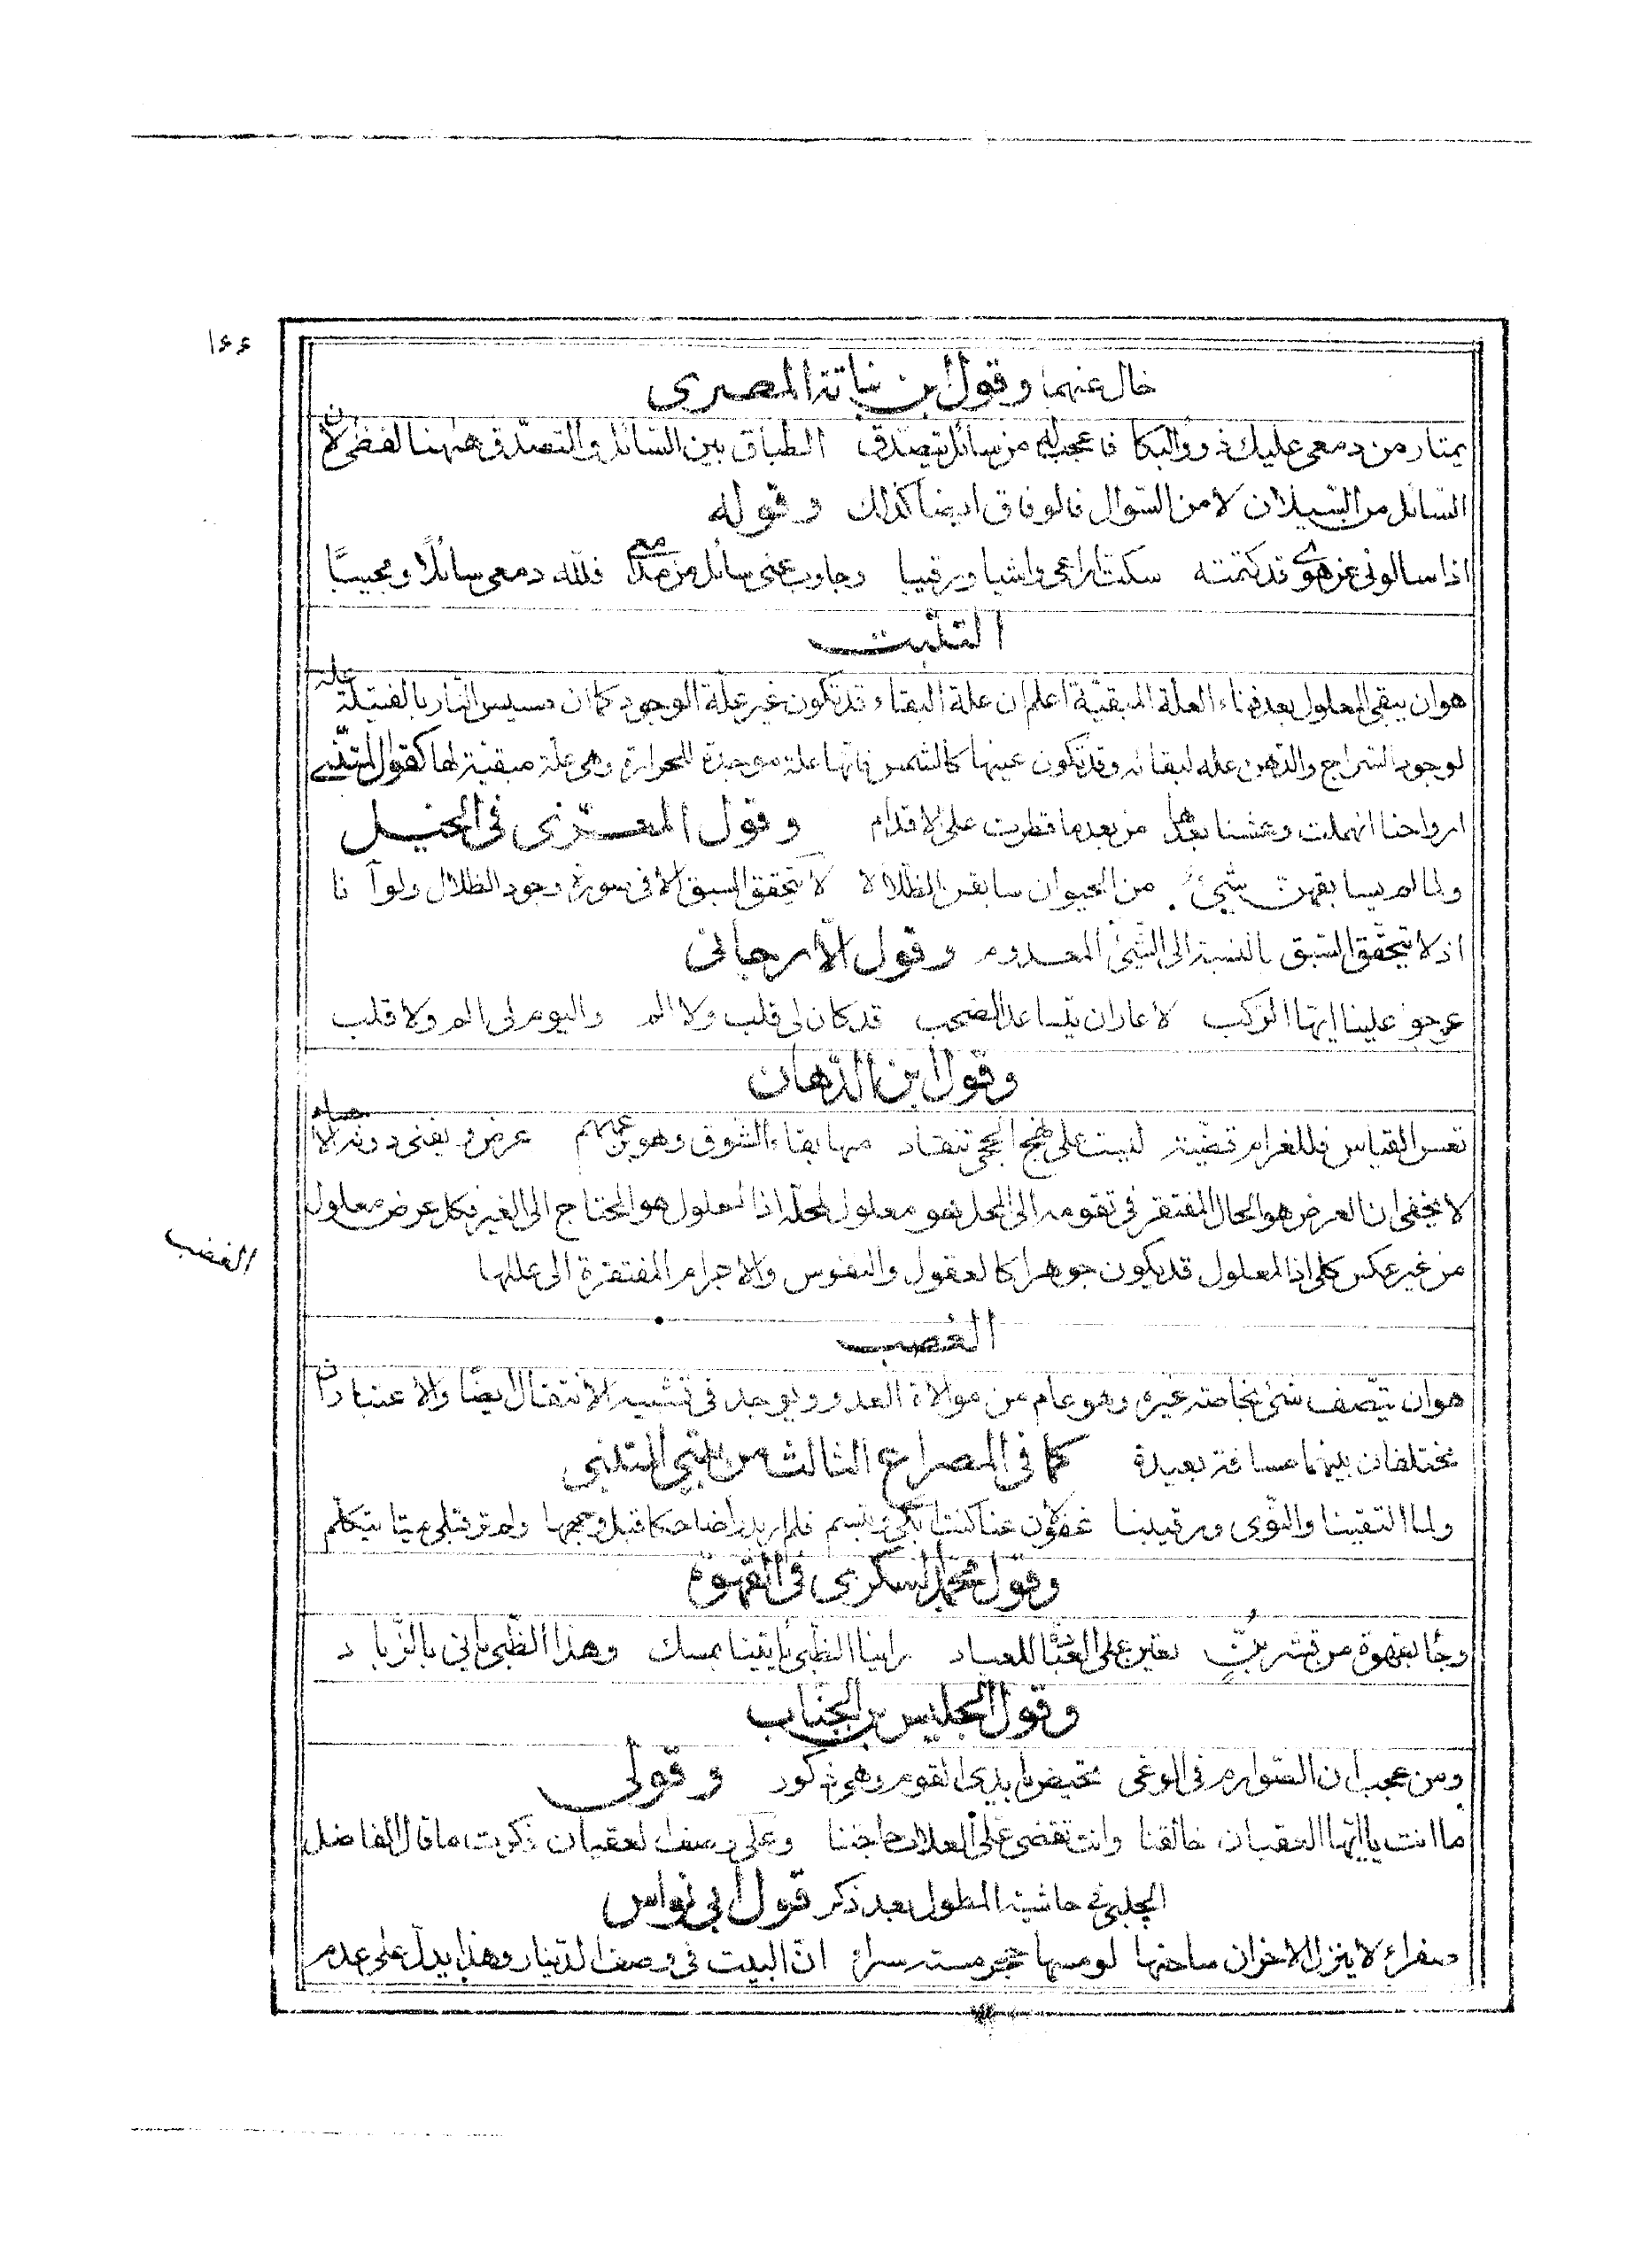 ١٤٤
خال عنهما وقول ابن نباتة المصرى
يمتار من دمعى عليك ذووالبكا فاعجب له من سائل يتصدق الطباق بين السائل والتصدّق ههنا لفظى لان
السّائل من السّيلان لا من السّوال فالوفاق ايضا كذلك وقوله
اذا سالونى عن هوى قد كتمته سكت اراعى واشيا ورقيبا وجاوب عنى سائل من مدامعى فللّه دمعى سائلًا ومجيبًا
التثبت
هو ان يبقى المعلول بعد فناء العلة المبقيّة اعلم ان علة البقاء قد تكون غير علّة الوجود كما ان مسيس النّار بالفتيلة علة
لوجود السّراج والدّهن علة لبقائه وقد تكون عينها كالشمس فانّها علة موجدة للحرارة وهى علّة مبقية لها كقول المتنبّى
ارواحنا انهملت وعشنا بعدها من بعد ما قطرت على الاقدام وقول المعرّى فى الخيل
ولما لم يسابقهن شئ من الحيوان سابقن الظلالا لا تحقق السبق الا فى صورة وجود الظلال ولو آنا
اذ لا يتحقّق السّبق بالنسبة الى الشّئ المعدوم وقول الارجانى
عوجو علينا ايّها الرّكب لا عار ان يتساعد الصّحب قد كان لى قلب ولا الم واليوم لى الم ولا قلب
وقول ابن الدّهان
تعس القياس فللغرام قضيّة ليست على نهج الحجى تنقاد منها بقاء الشّوق وهو بزعمهم عرض وتفنى دونه الاجساد
لا يخفى ان العرض هو الحال المفتقر فى تقومه الى المحل فهو معلول لمحلّه اذا لمعلول هو المحتاج الى الغير فكل عرض معلول
من غير عكس كلى اذا لمعلول قد يكون جوهرا كالعقول والنفوس والاجرام المفتقرة الى عللها
الغصب
الغصب
هو ان يتّصف شئ بخاصة غيره وهو عام من موالاة العدو ويوجد فى تشبيه الانتقال ايضًا والاعتباران
مختلفان بينهما مسافة بعيدة كما فى المصراع الثالث من بيتى المتنبى
ولما التقينا والنّوى ورقيبنا غفولان عنا كنت ابكى وتبسم فلم ار بدرا ضاحكا قبل وجهها ولم تر قبلى ميتا يتكلّم
وقول محمد السكرى فى القهوة
وجائت بقهوة من قشر بُنٍّ تعين على العبادة للعباد راينا الظّبى يأتينا بمسك وهذا الظّبى يأتى بالزّباد
وقول الجليس بن الجبّاب
ومن عجب ان الصّوارم فى الوغى تحيض بايدى القوم وهى ذكور وقولى
ما انت يا ايّها العقبان خالقنا وانت تقضى على العلات حاجتنا وعلى وصف العقبان ذكرت ما قال الفاضل
الچلبى فى حاشية المطول بعد ذكر قول ابى نواس
صفراء لا ينزل الاحزان ساحتها لو مسها حجر مسته سراء انّ البيت فى وصف الدّينار وهذا يدلّ على عدم